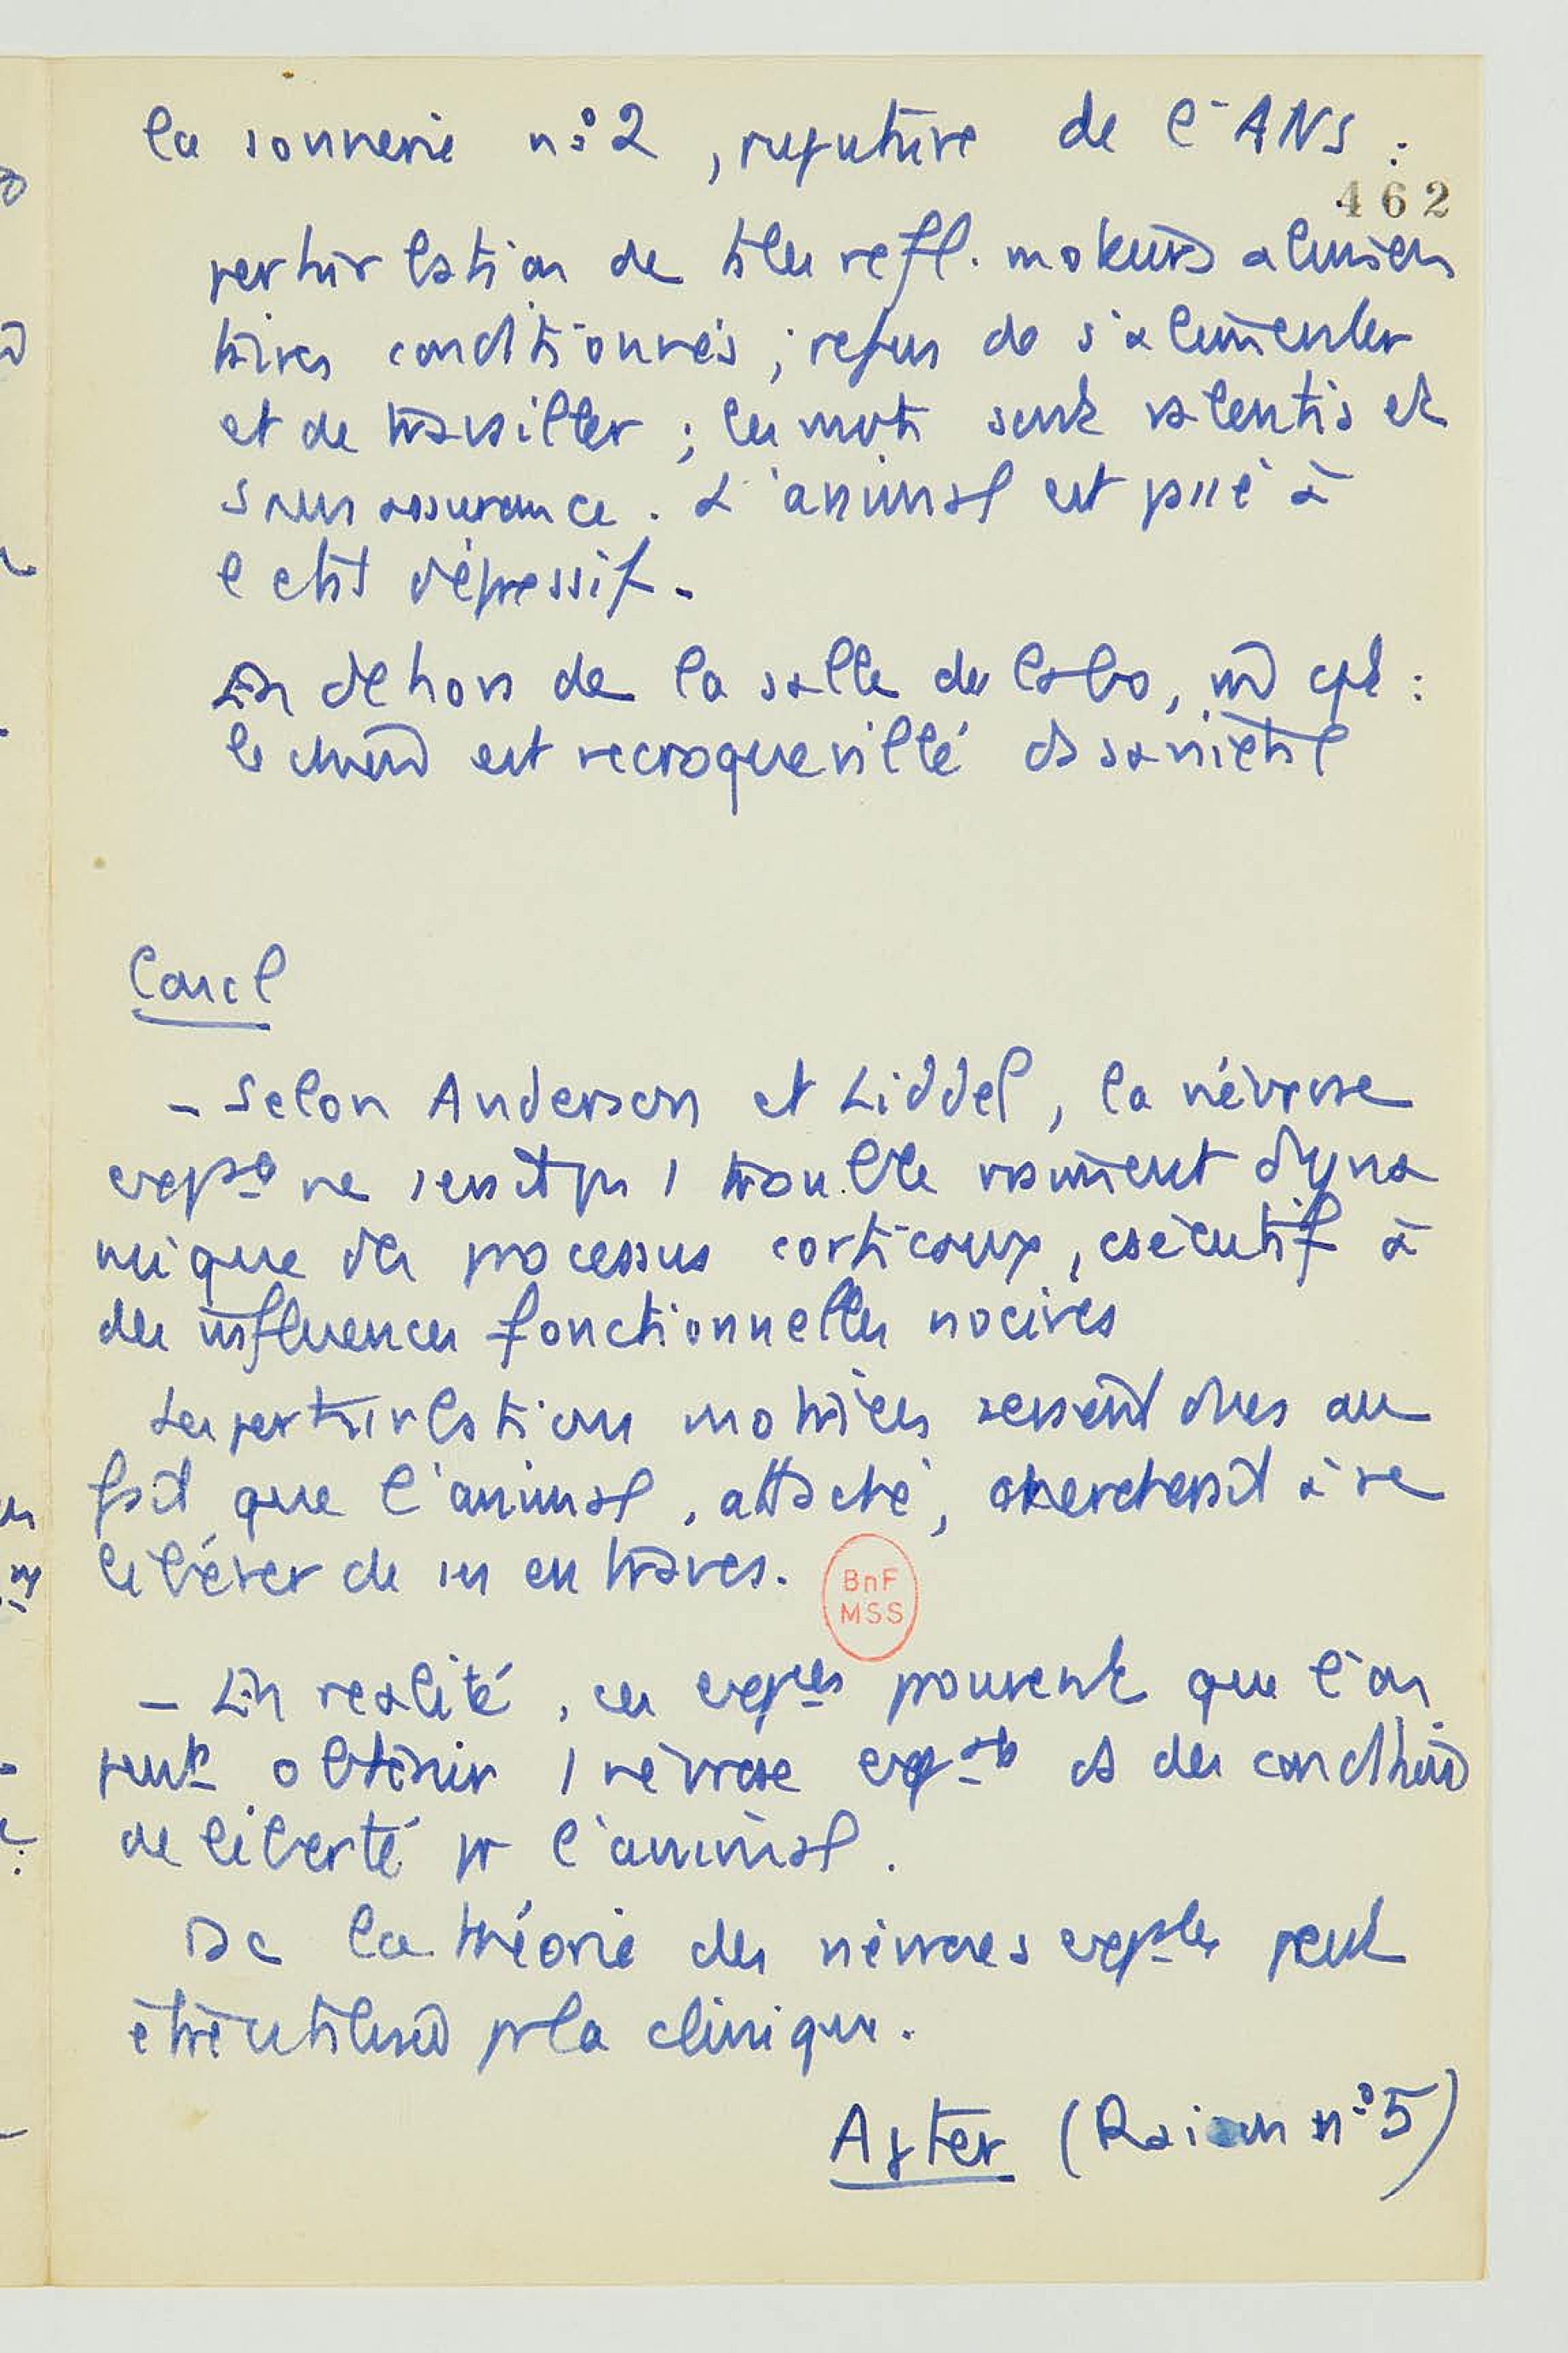 la sonnerie n° 2, rupture de l'ANS :
462
perturbation de tts les refl. moteurs alimen
taires conditionnés ; refus de s'alimenter
et de travailler ; les mvts sont ralentis et
sans assurance. L'animal est prié à
l'etat dépressif.
En dehors de la salle de labo, m̄ cpt :
le chien est recroquevillé ds sa niche
Concl
- Selon Anderson et Liddel, la névrose
exp^le ne serait pas 1 trouble vraiment dyna
mique des processus corticaux, csécutif à
des influences fonctionnelles nocives
Les perturbations motrices seraient dues au
fait que l'animal, attaché, chercherait à se
libérer de ses entraves.
BnF
MSS
- En realité, ces exp^ces prouvent que l'on
peut obtenir 1 névrose exp^le ds des conditions
de liberté pr l'animal.
Dc la théorie des névroses exp^les peut
être utilisée pr la clinique.
Aster (Raison n° 5)